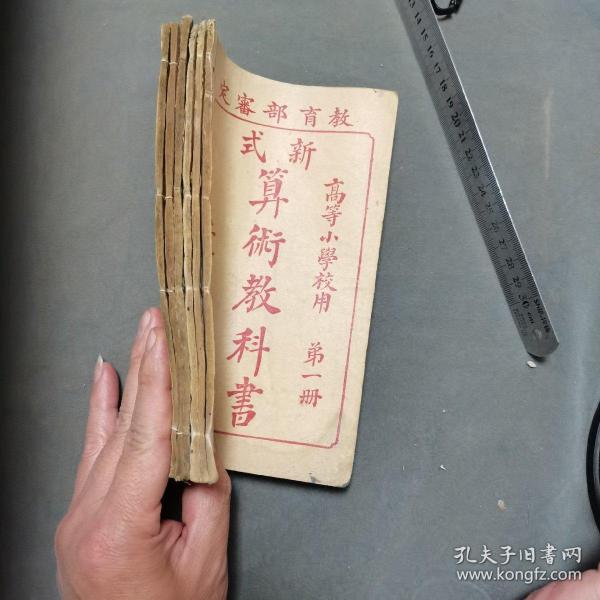 教育部審定
新式
算術教科書
高等小學校用
第一册
孔夫子旧书网
www.kongfz.com